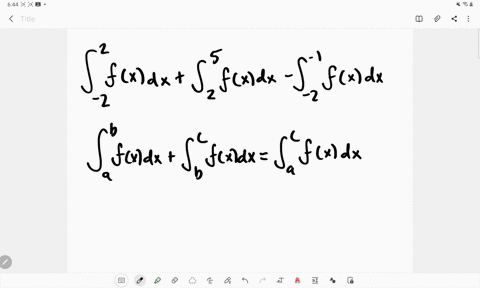 6:44
Title
∫_{-2}^{2} f(x) dx + ∫_{2}^{5} f(x) dx - ∫_{-2}^{-1} f(x) dx
∫_{a}^{b} f(x) dx + ∫_{b}^{c} f(x) dx = ∫_{a}^{c} f(x) dx